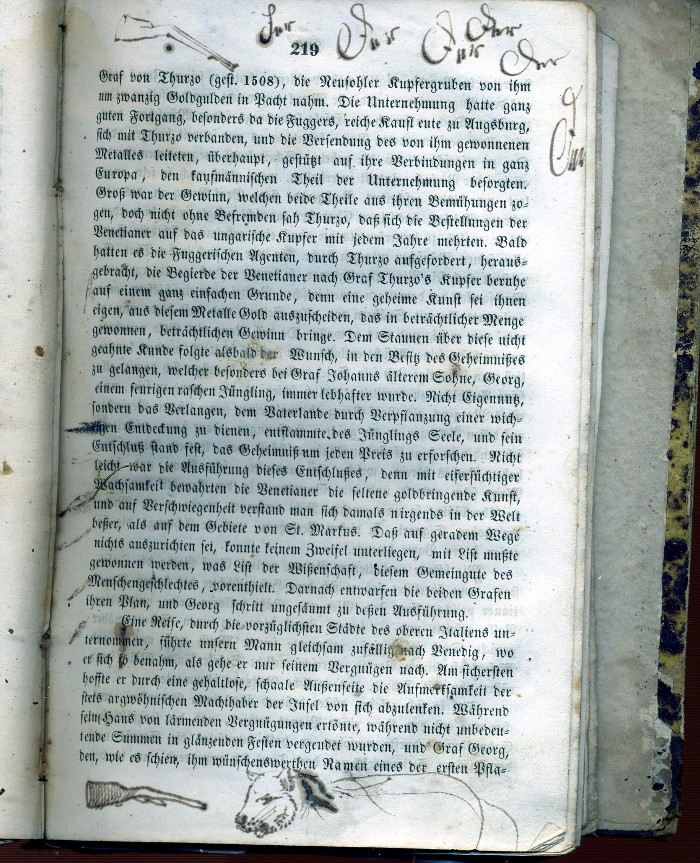 Der Der Der Der Der Der
219
Graf von Thurzo (gest. 1508), die Neusohler Kupfergruben von ihm
um zwanzig Goldgulden in Pacht nahm. Die Unternehmung hatte ganz
guten Fortgang, besonders da die Fuggers, reiche Kaufl ente zu Augsburg,
sich mit Thurzo verbanden, und die Versendung des von ihm gewonnenen
Metalles leiteten, überhaupt, gestützt auf ihre Verbindungen in ganz
Europa, den kaufmännischen Theil der Unternehmung besorgten.
Groß war der Gewinn, welchen beide Theile aus ihren Bemühungen zo-
gen, doch nicht ohne Befremden sah Thurzo, daß sich die Bestellungen der
Venetianer auf das ungarische Kupfer mit jedem Jahre mehrten. Bald
hatten es die Fuggerischen Agenten, durch Thurzo aufgefordert, heraus-
gebracht, die Begierde der Venetianer nach Graf Thurzo's Kupfer beruhe
auf einem ganz einfachen Grunde, denn eine geheime Kunst sei ihnen
eigen, aus diesem Metalle Gold auszuscheiden, das in beträchtlicher Menge
gewonnen, beträchtlichen Gewinn bringe. Dem Staunen über diese nicht
geahnte Kunde folgte alsbald der Wunsch, in den Besitz des Geheimnißes
zu gelangen, welcher besonders bei Graf Johanns älterem Sohne, Georg,
einem feurigen raschen Jüngling, immer lebhafter wurde. Nicht Eigennutz,
sondern das Verlangen, dem Vaterlande durch Verpflanzung einer wich-
tigen Entdeckung zu dienen, entflammte des Jünglings Seele, und sein
Entschluß stand fest, das Geheimniß um jeden Preis zu erforschen. Nicht
leicht war die Ausführung dieses Entschlußes, denn mit eifersüchtiger
Wachsamkeit bewahrten die Venetianer die seltene goldbringende Kunst,
und auf Verschwiegenheit verstand man sich damals nirgends in der Welt
beßer, als auf dem Gebiete von St. Markus. Daß auf geradem Wege
nichts auszurichten sei, konnte keinem Zweifel unterliegen, mit List mußte
gewonnen werden, was List der Wißenschaft, diesem Gemeingute des
Menschengeschlechtes, vorenthielt. Darnach entwarfen die beiden Grafen
ihren Plan, und Georg schritt ungesäumt zu deßen Ausführung.
Eine Reise, durch die vorzüglichsten Städte des oberen Italiens un-
ternommen, führte unsern Mann gleichsam zufällig nach Venedig, wo
er sich so benahm, als gehe er nur seinem Vergnügen nach. Am sichersten
hoffte er durch eine gehaltlose, schaale Außenseite die Aufmerksamkeit der
stets argwöhnischen Machthaber der Insel von sich abzulenken. Während
sein Haus von lärmenden Vergnügungen ertönte, während nicht unbedeu-
tende Summen in glänzenden Festen vergeudet wurden, und Graf Georg,
den, wie es schien, ihm wünschenswerthen Namen eines der ersten Pfla-